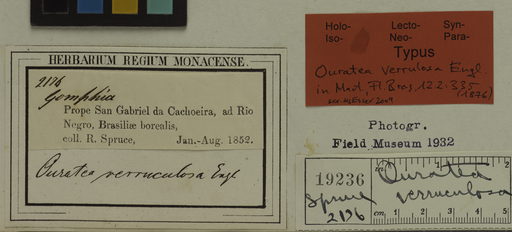 HERBARIUM REGIUM MONACENSE.
2176
Gomphia
Prope San Gabriel da Cachoeira, ad Rio
Negro, Brasiliæ borealis,
coll. R. Spruce, Jan.-Aug. 1852.
Ouratea verruculosa Engl
Holo- Lecto- Syn-
Iso- Neo- Para-
Typus
Ouratea verrulosa Engl.
in Mart, Fl. Bras, 12.2:335
(1876)
Photogr.
Field Museum 1932
19236
Spruce
2176
Ouratea
verruculosa
m 1 2
cm 1 2 3 4 5